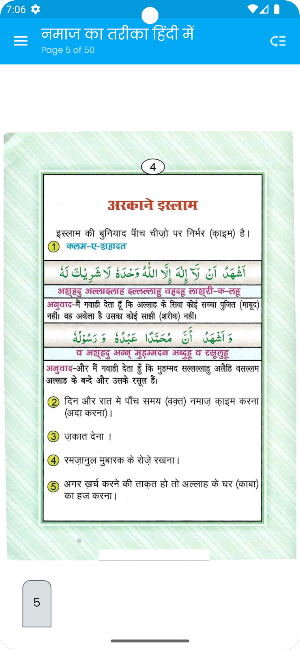 7:06
नमाज का तरीका हिंदी में
Page 5 of 50
4
अरकाने इस्लाम
इस्लाम की बुनियाद पाँच चीज़ो पर निर्भर (क़ाइम) है।
1 कलम-ए-शहादत
اَشْهَدُ اَنْ لَّآ اِلٰهَ اِلَّا اللّٰهُ وَحْدَهٗ لَا شَرِيْكَ لَهٗ
अशहदु अल्लाइलाह इल्लल्लाहु वहदहू लाशरी-क-लहू
अनुवाद-मैं गवाही देता हूँ कि अल्लाह के सिवा कोई सच्चा पुजित (माबूद)
नहीं। वह अकेला है उसका कोई साझी (शरीक) नहीं।
وَ اَشْهَدُ اَنَّ مُحَمَّدًا عَبْدُهٗ وَ رَسُوْلُهٗ
व अशहदु अन्न मुहम्मदन अब्दुहू व रसूलुहू
अनुवाद-और मैं गवाही देता हूँ कि मुहम्मद सल्लल्लाहु अलैहि वसल्लम
अल्लाह के बन्दे और उसके रसूल हैं।
2 दिन और रात मे पाँच समय (वक़्त) नमाज़ क़ाइम करना
(अदा करना)।
3 ज़कात देना ।
4 रमज़ानुल मुबारक के रोज़े रखना।
5 अगर ख़र्च करने की ताक़त हो तो अल्लाह के घर (काबा)
का हज करना।
5